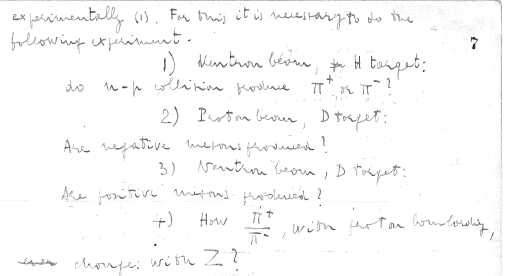 experimentally (1). For this it is necessary to do the
following experiment.
7
1) Neutron beam, H target:
do n-p collision produce π⁺ or π⁻?
2) Proton beam, D target:
Are negative mesons produced?
3) Neutron beam, D target:
Are positive mesons produced?
4) How π⁺/π⁻, with proton bombarding,
changes with Z?